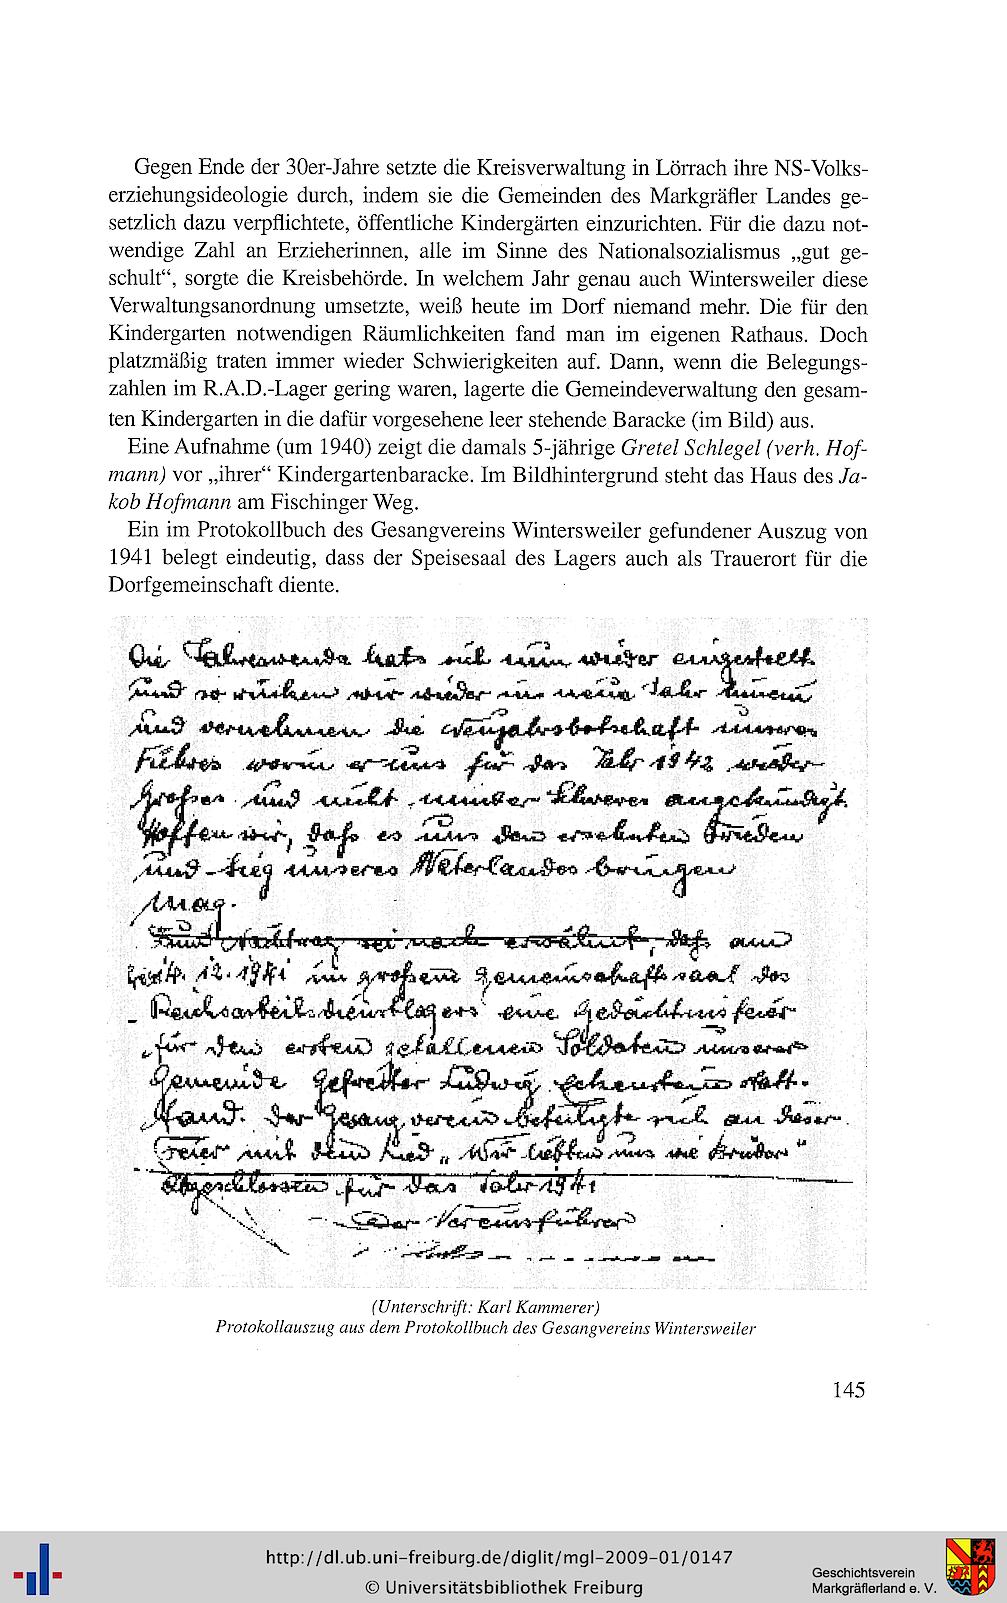 Gegen Ende der 30er-Jahre setzte die Kreisverwaltung in Lörrach ihre NS-Volks-
erziehungsideologie durch, indem sie die Gemeinden des Markgräfler Landes ge-
setzlich dazu verpflichtete, öffentliche Kindergärten einzurichten. Für die dazu not-
wendige Zahl an Erzieherinnen, alle im Sinne des Nationalsozialismus „gut ge-
schult“, sorgte die Kreisbehörde. In welchem Jahr genau auch Wintersweiler diese
Verwaltungsanordnung umsetzte, weiß heute im Dorf niemand mehr. Die für den
Kindergarten notwendigen Räumlichkeiten fand man im eigenen Rathaus. Doch
platzmäßig traten immer wieder Schwierigkeiten auf. Dann, wenn die Belegungs-
zahlen im R.A.D.-Lager gering waren, lagerte die Gemeindeverwaltung den gesam-
ten Kindergarten in die dafür vorgesehene leer stehende Baracke (im Bild) aus.
Eine Aufnahme (um 1940) zeigt die damals 5-jährige Gretel Schlegel (verh. Hof-
mann) vor „ihrer“ Kindergartenbaracke. Im Bildhintergrund steht das Haus des Ja-
kob Hofmann am Fischinger Weg.
Ein im Protokollbuch des Gesangvereins Wintersweiler gefundener Auszug von
1941 belegt eindeutig, dass der Speisesaal des Lagers auch als Trauerort für die
Dorfgemeinschaft diente.
Die Jahreswende hat sich nun wieder eingestellt
und so rücken wir wieder im neue Jahr hinein
und vernehmen die Neujahrsbotschaft unseres
Führers worin er uns für das Jahr 1942 wieder
Großes und nicht minder Schweres angekündigt.
Hoffen wir, daß es uns den ersehnten Frieden
und Sieg unseres Vaterlandes bringen
mag.
Zum Nachtrag sei noch erwähnt, daß am
14. 12. 1941 im großem Gemeinschaftssaal des
Reichsarbeitsdienstlagers eine Gedächtnisfeier
für den ersten gefallenen Soldaten unserer
Gemeinde Gefreiter Ludwig Echenstein statt-
fand. Der Gesangverein beteiligte sich an dieser
Feier mit dem Lied „Wir liebten uns wie Brüder“
Abgeschlossen für das Jahr 1941
Der Vereinsführer
(Unterschrift: Karl Kammerer)
Protokollauszug aus dem Protokollbuch des Gesangvereins Wintersweiler
145
http://dl.ub.uni-freiburg.de/diglit/mgl-2009-01/0147
© Universitätsbibliothek Freiburg
Geschichtsverein
Markgräflerland e. V.